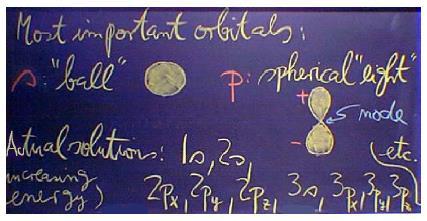 Most important orbitals:
s: "ball" p: spherical "eight"
+
mode
-
Actual solutions: 1s, 2s, etc.
(increasing
energy) 2px, 2py, 2pz, 3s, 3px, 3py, 3pz